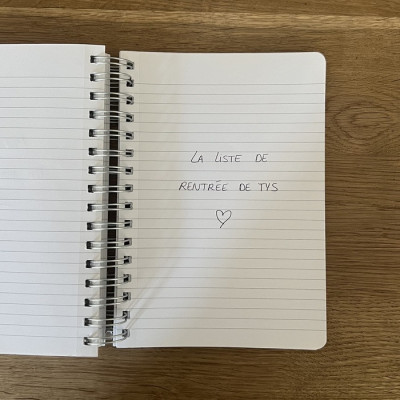 LA LISTE DE
RENTRÉE DE TYS